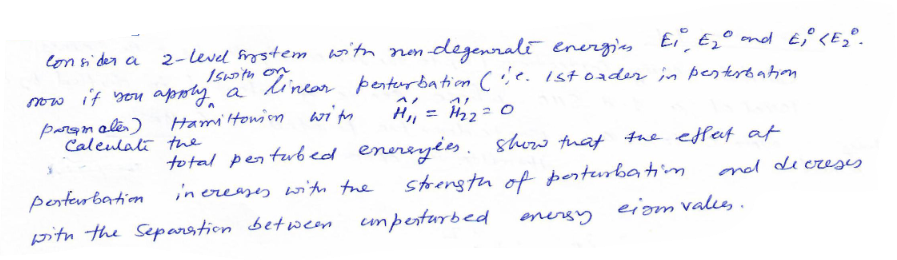 Consider a 2-level system with non-degenrate energies E₁⁰, E₂⁰ and E₁⁰ < E₂⁰.
now if you apply /switch on a linear perturbation (i.e. 1st order in perterbation
parameter) Hamiltonion with Ĥ'₁₁ = Ĥ'₂₂ = 0
Calculate the
total perturbed energyies. Show that the effect of
perturbation increases with the strength of perturbation and decreses
with the separation between unperturbed energy eigen values.